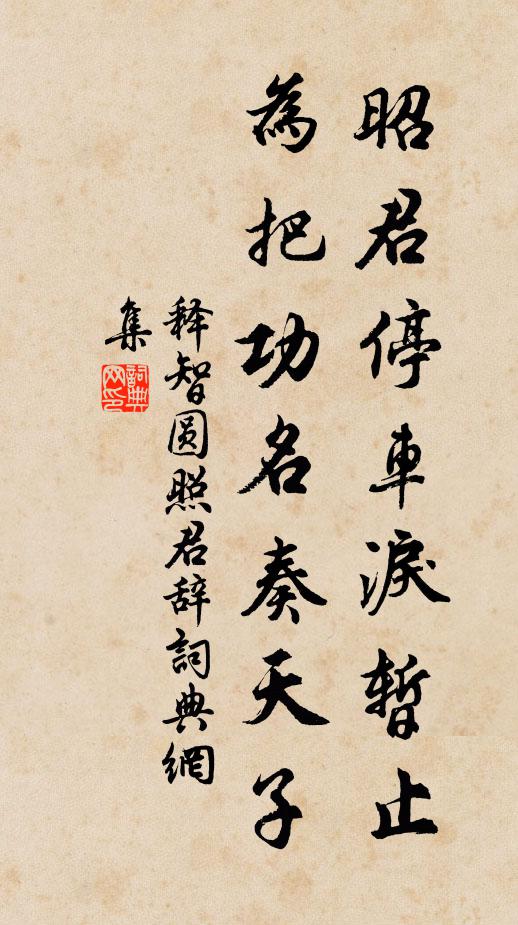 昭君停車淚暫止
為把功名奏天子
释智圆照君辞詞典網
集
詞典
网印